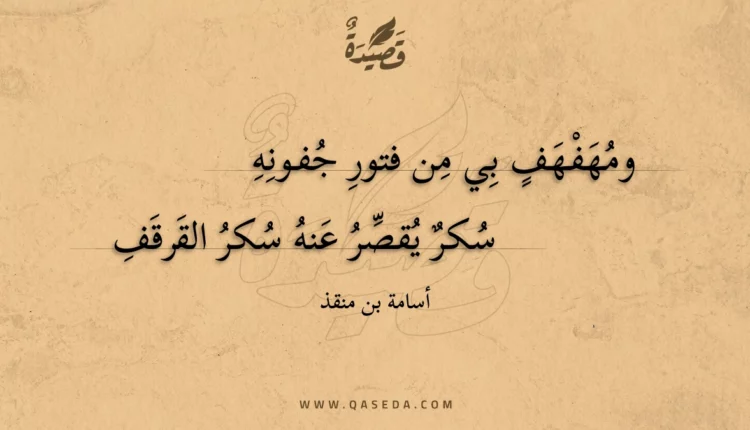 قَصِيْدَةٌ
ومُهَفْهَفٍ بِي مِن فتورِ جُفونِهِ
سُكرٌ يُقصِّرُ عَنهُ سُكرُ القَرقَفِ
أسامة بن منقذ
WWW.QASEDA.COM